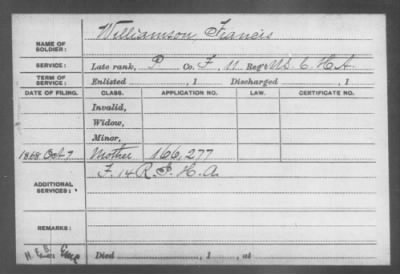 NAME OF SOLDIER: Williamson, Francis
SERVICE: Late rank, P Co. F, 11 Reg't U.S. C. H A.
TERM OF SERVICE: Enlisted , 1 Discharged , 1
DATE OF FILING. CLASS. APPLICATION NO. LAW. CERTIFICATE NO.
Invalid,
Widow,
Minor,
1868 Oct 7 Mother 166,277
ADDITIONAL SERVICES: F. 14 R. I. H. A.
REMARKS:
Died , 1 , at